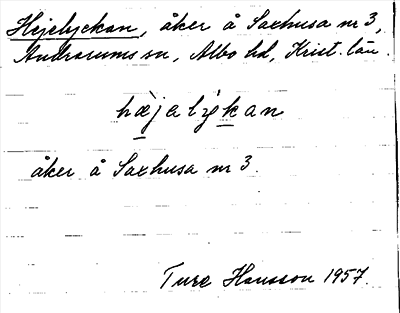 Hejelyckan, åker å Saxhusa nr 3,
Andrarums sn, Albo hd, Krist. län.
hæjalykan
åker å Saxhusa nr 3.
Ture Hansson 1957.